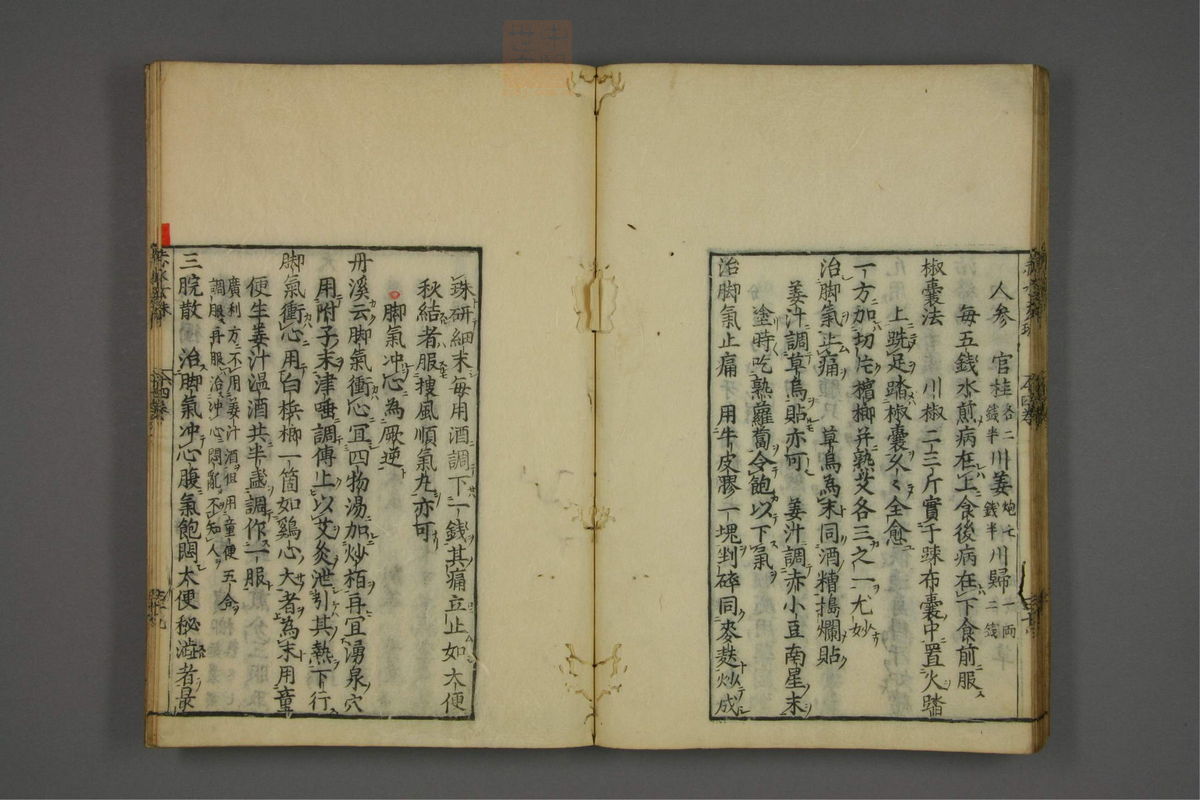 人参　官桂各二錢半川姜炮七錢半川歸一両二錢
每五錢水煎病在上食後病在下食前服
椒囊法　川椒二三斤實于踈布囊中置火踏
上跣足踏椒囊久々全愈
一方加切片檳榔并熟艾各三之一尤妙
治脚氣止痛　草烏為末同酒糟搗爛貼
姜汁調草烏貼亦可　姜汁調赤小豆南星末
塗時吃熟蘿蔔令飽以下氣
治脚氣止痛　用牛皮膠一塊剉碎同麥麩炒成
珠研細末每用酒調下一錢其痛立止如大便
秋結者服捜風順氣丸亦可
脚氣冲心為厥逆
丹溪云脚氣衝心宜四物湯加炒栢再宜湧泉穴
用附子末津唾調傅上以艾灸泄引其熱下行
脚氣衝心用白梹榔一箇如鷄心大者為末用童
便生姜汁温酒共半盞調作一服
廣利方不用姜汁酒但用童便五合
調服再服治冲心悶亂不知人
三脘散　治脚氣冲心腹氣飽悶大便秘澁者最